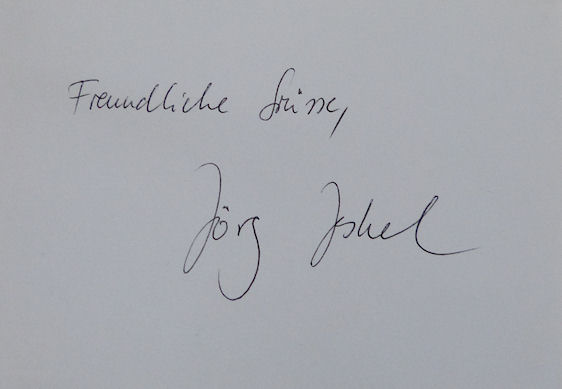 Freundliche Grüsse,
Jörg Ishel